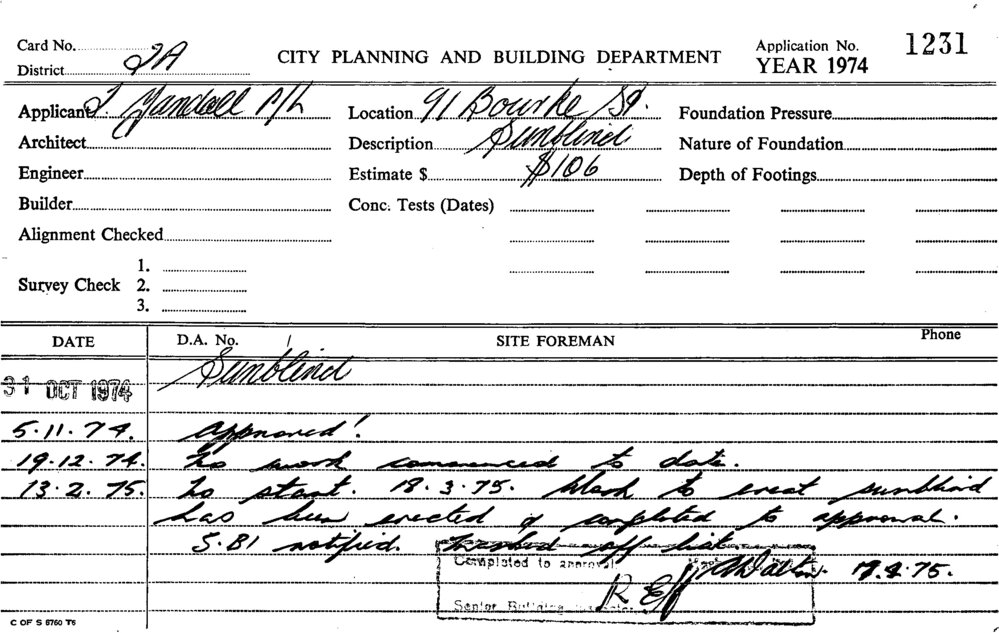 Card No.
District 2A
CITY PLANNING AND BUILDING DEPARTMENT
Application No. 1231
YEAR 1974
Applicant J. Yandell P/L
Location 91 Bourke St.
Foundation Pressure
Architect
Description Sunblind
Nature of Foundation
Engineer
Estimate $ $106
Depth of Footings
Builder
Conc. Tests (Dates)
Alignment Checked
Survey Check 1.
2.
3.
DATE D.A. No. / SITE FOREMAN Phone
Sunblind
31 OCT 1974
5.11.74. Approved!
19.12.74. No work commenced to date.
13.2.75. No start. 18.3.75. Work to erect sunblind
has been erected & completed to approval.
S.BI notified. off list
Completed to approval
Walton 17.4.75.
Senior Building
C OF S 8760 T6